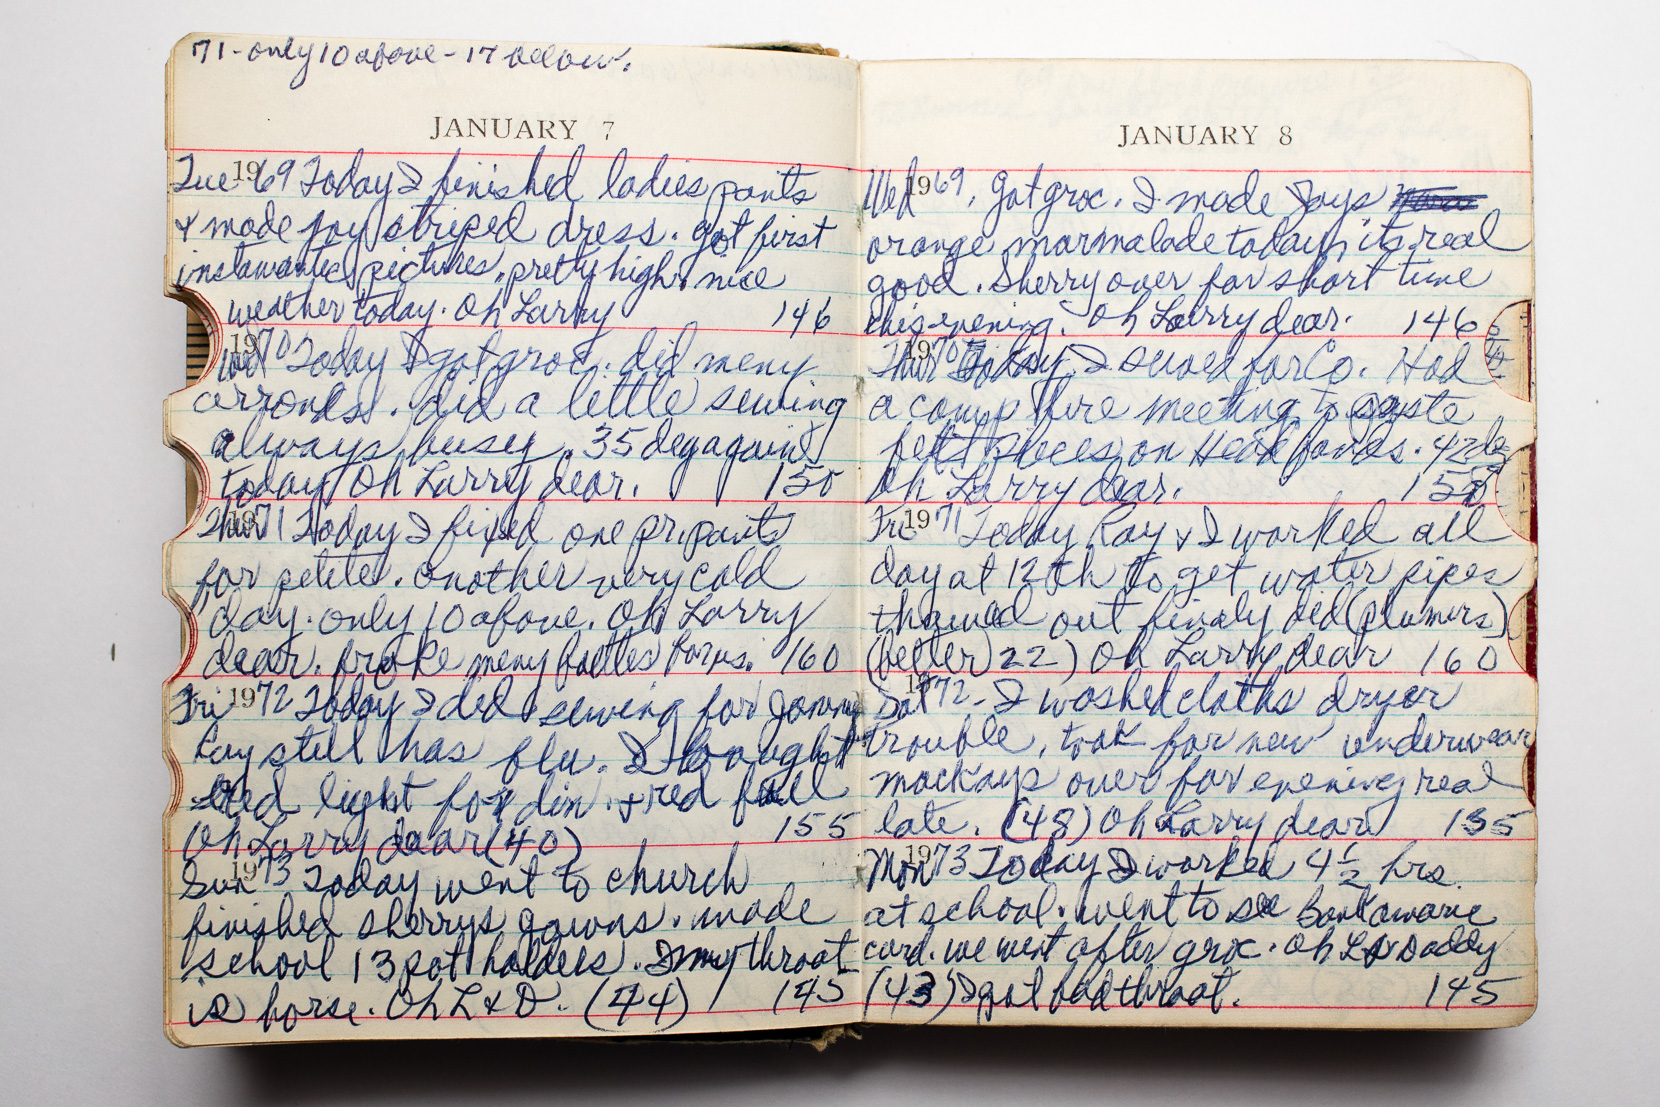 71-only 10 above - 17 below.
JANUARY 7
Tue 1969 Today I finished ladies pants
& made joy striped dress. got first
instamatic pictures, pretty high. nice
weather today. Oh Larry 146
Wed 1970 Today I got groc. did meny
arronds. did a little sewing
always busey. 35 deg again
today Oh Larry dear. 150
Thur 1971 Today I fixed one pr. pants
for petite. another very cold
day. only 10 above. Oh Larry
dear. broke meny bottles 160
Fri 1972 Today I did sewing for
Ray still has flu. I bought
red light for din. & red
Oh Larry dear (40) 155
Sun 1973 Today went to church
finished sherrys gowns. made
school 13 pot holders. my throat
is horse. Oh L & D. (44) 145
JANUARY 8
Wed 1969. got groc. I made Jays
orange marmalade today, its real
good. Sherry over for short time
this evening. Oh Larry dear. 146
Thur 1970 Today I sewed for Co. Had
a camp fire meeting to paste
felt pieces on Head bands. 42 de
Oh Larry dear. 155
Fri 1971 Today Ray & I worked all
day at 12th to get water pipes
thawed out finaly did (plumers)
(better) 22) Oh Larry dear 160
Sat 1972. I washed cloths dryer
trouble, took for new underwear
mackays over for evening real
late. (48) Oh Larry dear 155
Mon 1973 Today I worked 4 1/2 hrs.
at school. went to see
card. we went after groc. Oh L & Daddy
(43) I got bad throat. 145